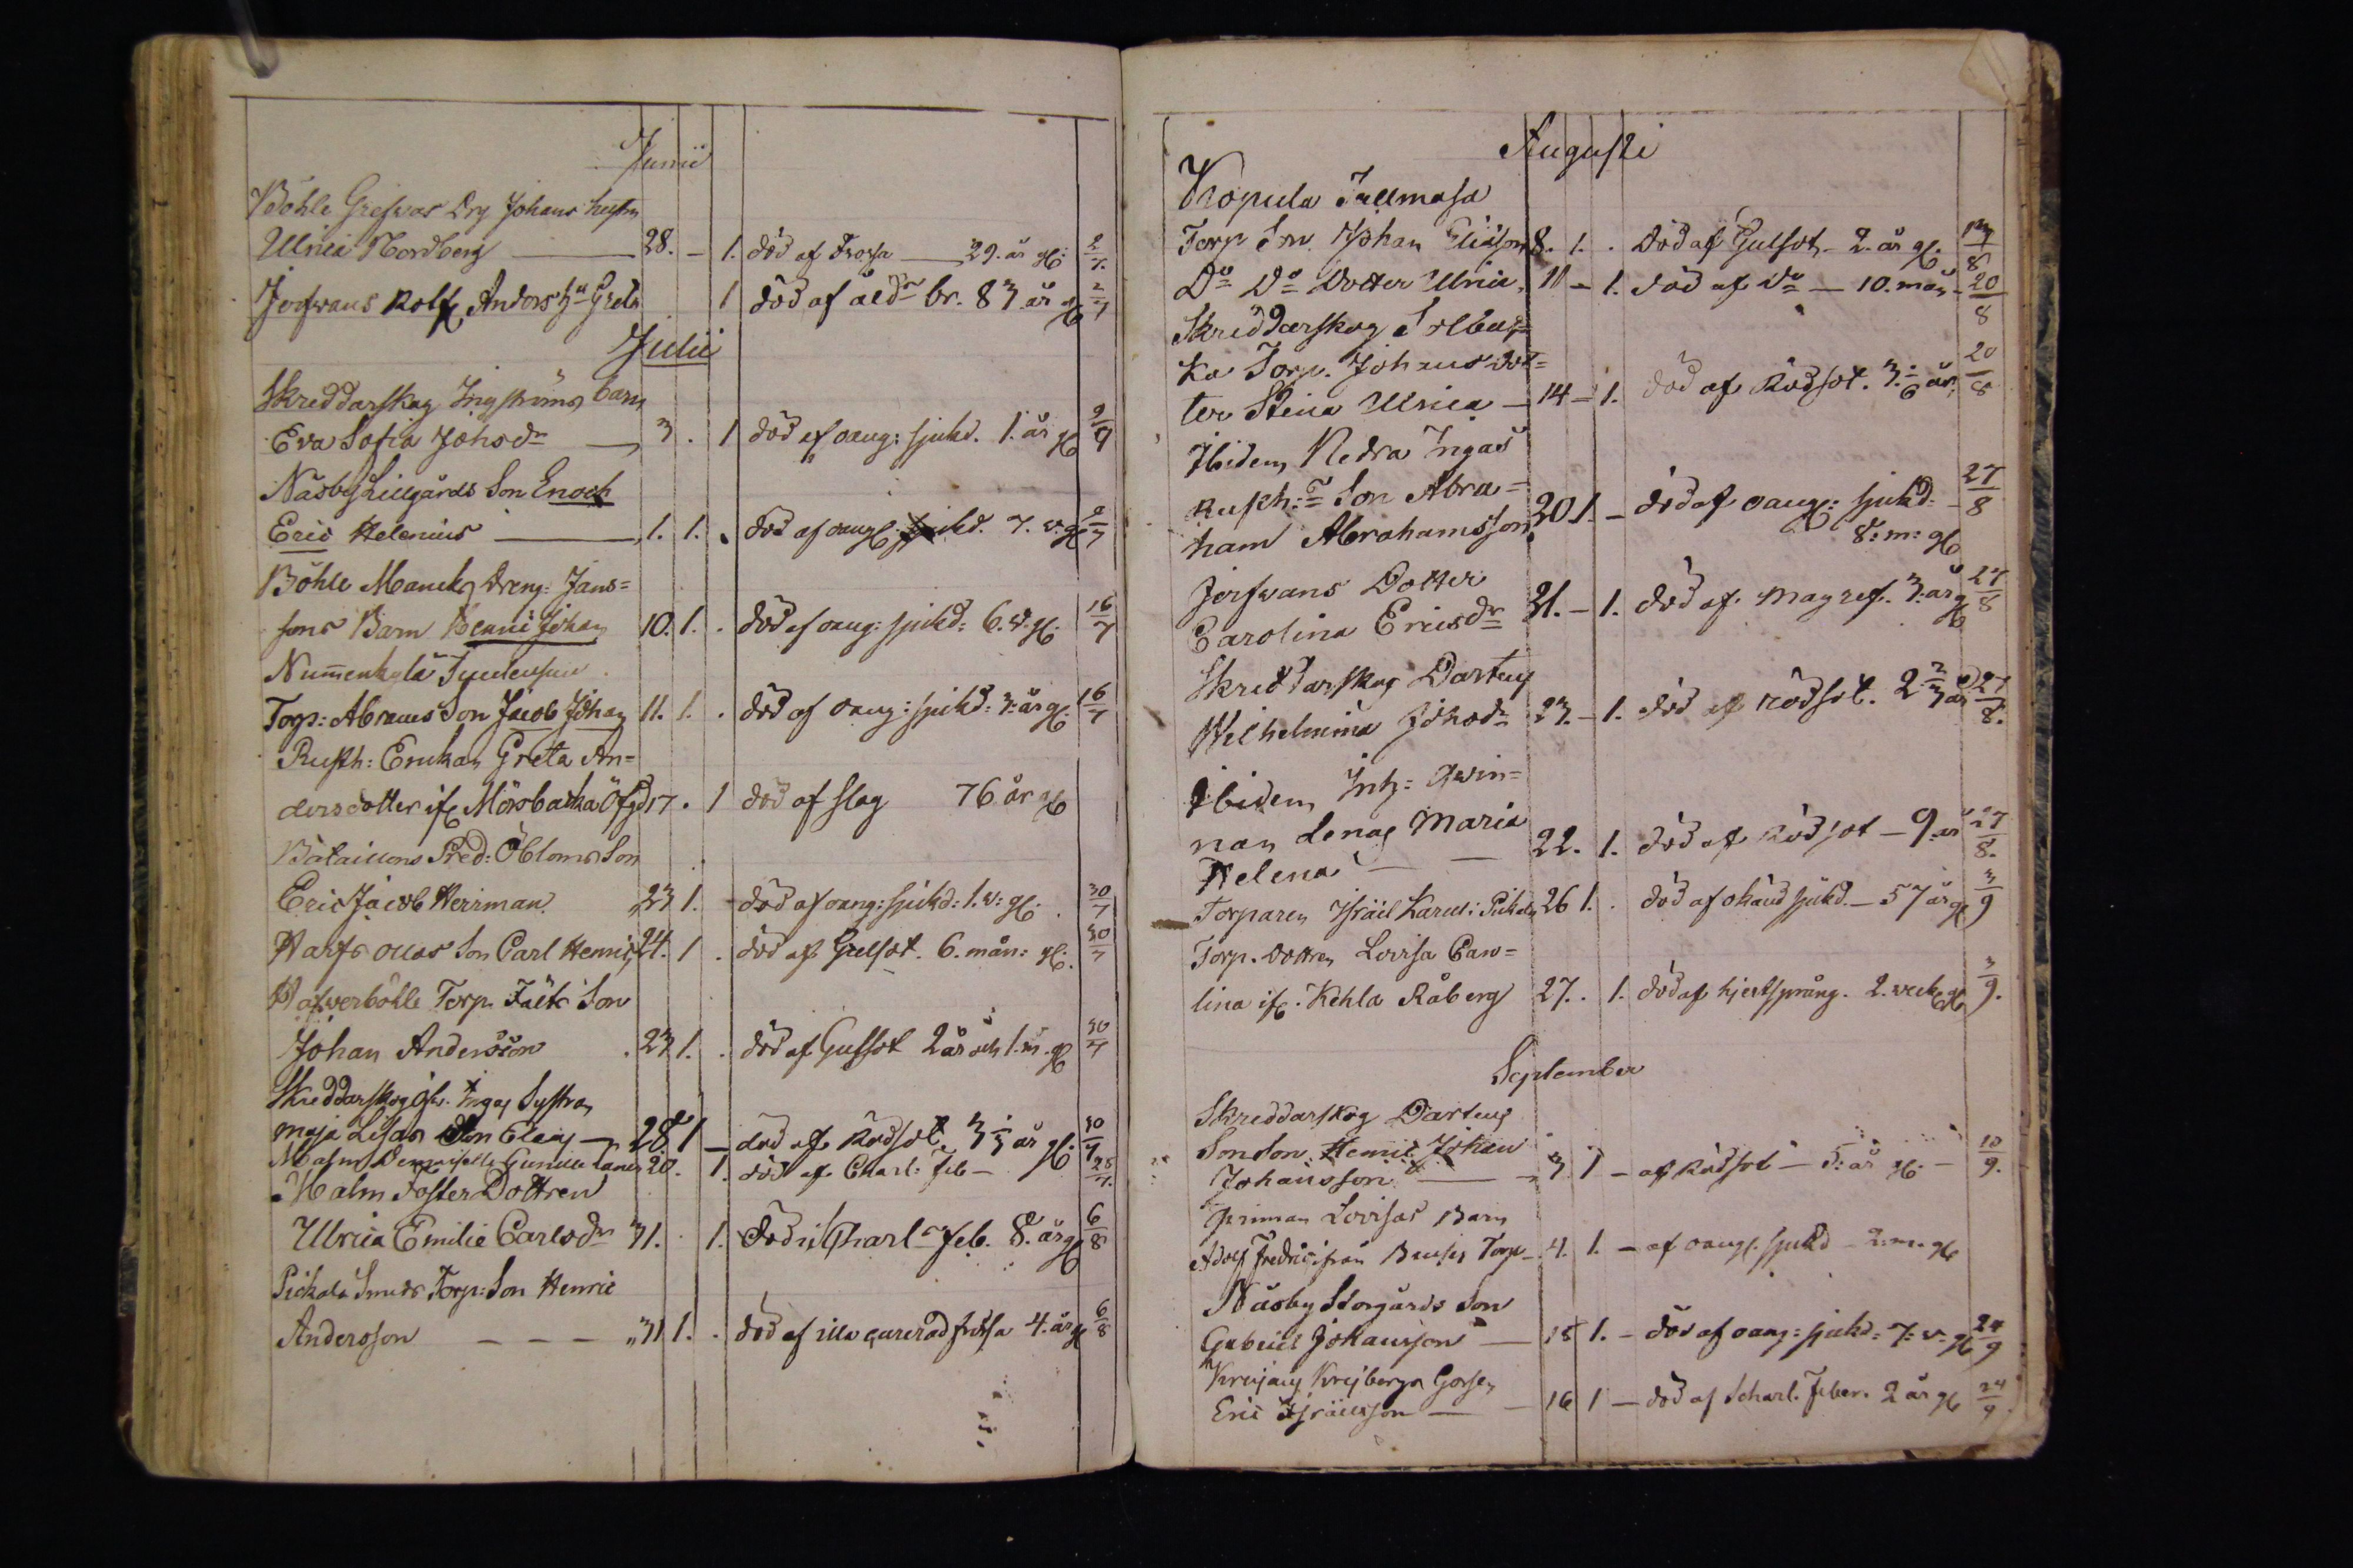 Junii
Böhle Grefvas Drg Johans hustru
Ulrica Nordberg — 28. – 1. död af Frossa — 29. år gl: 2/7.
Jofvans Rolf Anders Greta 1 död af åldr br. 83 år gl 2/7
Julii
Skreddarskog Ingströms barn
Eva Sofia Johsdr — 3 . 1 död af oang: sjukd. 1. år gl 9/7
Näsby Lillgårds Son Enoch
Eric Helenius — 1. 1. . död af oang: sjukd. 7. v. gl 9/7
Böhle Manels Dreng: Jans=
sons Barn Henric Johan 10. 1. . död af oang: sjukd: 6. v. gl. 16/7
Torp: Abrams Son Jacob Johan 11. 1. . död af oang: sjukd: 3. år gl. 16/7
Rusth: Enkan Greta An=
dersdotter if. Mörsbacka Öfgd 17 . 1 död af slag 76 år gl
Bataillons Pred: Öbloms Son
Eric Jacob Herrman 23 1. – död af oang: sjukd: 1. v: gl. 30/7
Harfs ollas Son Carl Henric 24. 1 . död af Gulsot. 6. mån: gl. 30/7
Hafverböhle Torp. Fält Son
Johan Andersson . 23 1. . död af Gulsot 2 år och 1. m. gl 30/7
Skreddarskog Inga Systran
Maja Lisas Son Claes — 28. 1 – död af Rödsot. 3 år gl. 30/7
Malm Gunilla 20. 1. död af Charl: Feb – 28/7.
Malm Foster Dottren
Ulrica Emilie Carlsdr 31. . 1. död i Charl: Feb. 8. år gl 6/8
Pickala Torp: Son Henric
Andersson – – – 31 1. . död af illa curerad frossa 4. år gl 6/8
Augusti
Kopula Tallmasa
Torp Son Johan Eliasson 8. 1. . Död af Gulsot – 2. år gl. 8
Do Do Dotter Ulrica 11 – 1. död af Do — 10. mån – 20/8
Skreddarskog Solbac=
ka Torp. Johans dot=
ter Stina Ulrica — 14 – 1. död af Rödsot. 3. år 20/8
Ibidem Nedra Ingas
Rusth: Son Abra=
ham Abrahamsson 20 1. – död af oang: sjukd – 27/8
8: m: gl
Jorfvans Dotter
Carolina Ericsdr 21. – 1. död af Magref. 3: år gl 27/8
Skreddarskog Dartuy
Wilhelmina Johsdr 23. – 1. död af rödsot. 2 2/3 år 27/8.
Ibidem Inh: Qvin=
nan Lenas Maria
Helena — 22. 1. död af Rödsot – 9. år 27/8.
Torparen Israel Karul: Pickala 26 1. . död af okänd sjukd. – 57 år gl 3/9
Torp. Dottren Lovisa Caro=
lina if. Kehla Råberg 27. . 1. död af hjertsprång. 2. veck gl 3/9.
September
Skreddarskog Dartuy
Sonson Henric Johan
Johansson — 3 1 – af Rödsot – 5: år gl. – 10/9.
Lovisas Barn
Adolf Fredric från Torp – 4. 1. – af oang. sjukd – 2. m. gl
Näsby Storgårds Son
Gabriel Johansson — 15 1. – död af oang: sjukd: 7: v. gl 24/9
Eric Israelsson — 16 1 – död af Scharl. Feber. 2 år gl 24/9